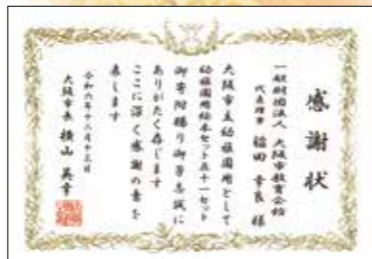 感謝状
一般財団法人 大阪市教育会館
代表理事 稲田 幸良 様
大阪市立幼稚園用として
幼稚園用絵本セット五十一セット
御寄附賜り御芳志誠に
ありがたく存じます
ここに深く感謝の意を
表します
令和六年十二月十三日
大阪市長 横山 英幸